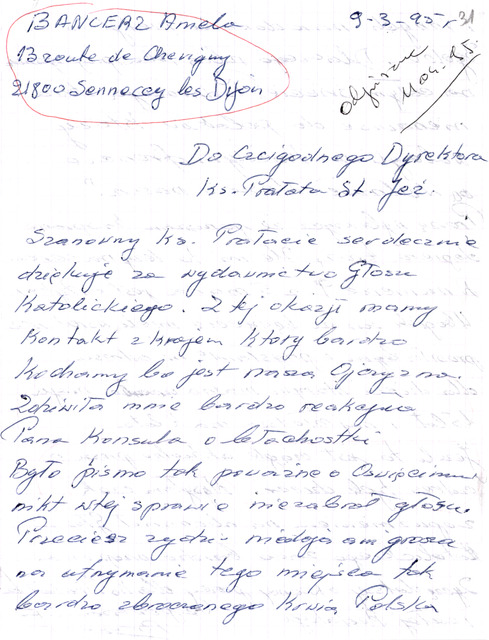 BANCERZ Amela
9-3-95r 31
13 route de Chevigny
21800 Sennecey les Dijon
odpisane
11 04. 95.
Do Czcigodnego Dyrektora
Ks. Prałata St. Jeż.
Szanowny Ks. Prałacie serdecznie
dziękuję za wydawnictwo Głosu
Katolickiego. Z tej okazji mamy
Kontakt z krajem Ktory bardzo
Kochamy bo jest naszą Ojczyzną.
Zdziwiła mnie bardzo reakcja
Pana Konsula o błachostki
Było pismo tak poważne o Oswięcimiu
nikt wtej sprawie niezabrał głosu.
Przeciesz zydzi niedają ani grosza
na utrzymanie tego miejsca tak
bardzo zbroczonego Krwią Polską